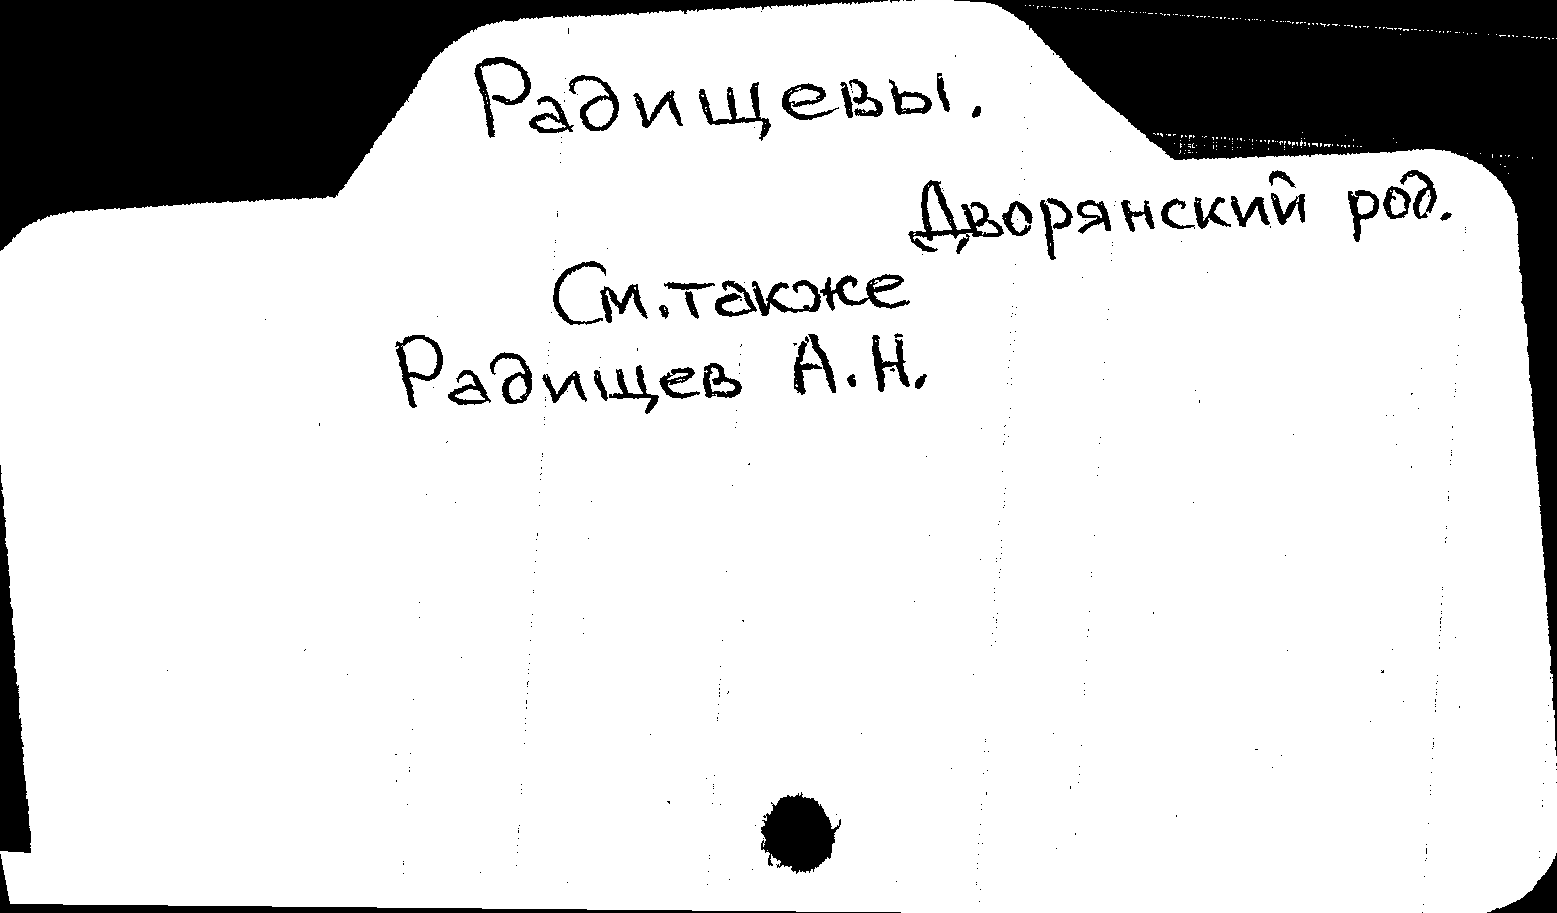 Радищевы.
Дворянский род.
См. также
Радищев А.Н.